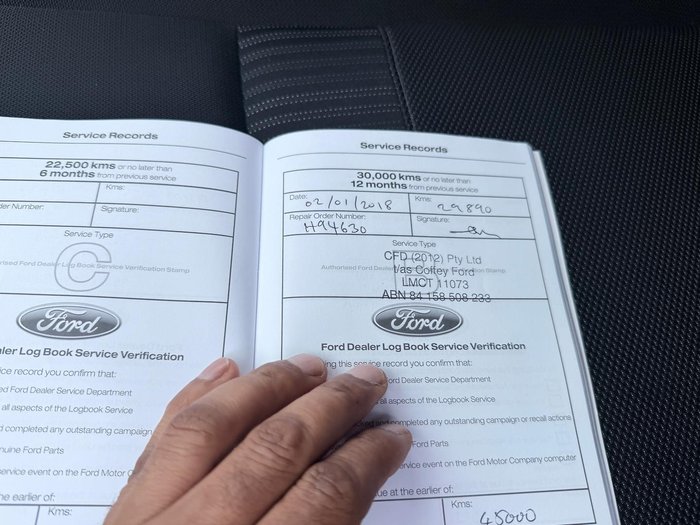 Service Records
22,500 kms or no later than
6 months from previous service
Kms:
der Number:
Signature:
Service Type
C
rised Ford Dealer Log Book Service Verification Stamp
Ford
ler Log Book Service Verification
ice record you confirm that:
ed Ford Dealer Service Department
all aspects of the Logbook Service
d completed any outstanding campaign
nuine Ford Parts
ervice event on the Ford Motor
e earlier of:
Kms:
Service Records
30,000 kms or no later than
12 months from previous service
Date: 02/01/2018
Kms: 29890
Repair Order Number: H94630
Signature:
Service Type
CFD (2012) Pty Ltd
Authorised Ford Dealer
t/as Coffey Ford
Stamp
LMCT 11073
ABN 84 158 508 233
Ford
Ford Dealer Log Book Service Verification
ing this service record you confirm that:
ord Dealer Service Department
all aspects of the Logbook Service
completed any outstanding campaign or recall actions
Ford Parts
ervice event on the Ford Motor Company computer
ue at the earlier of:
Kms:
45000